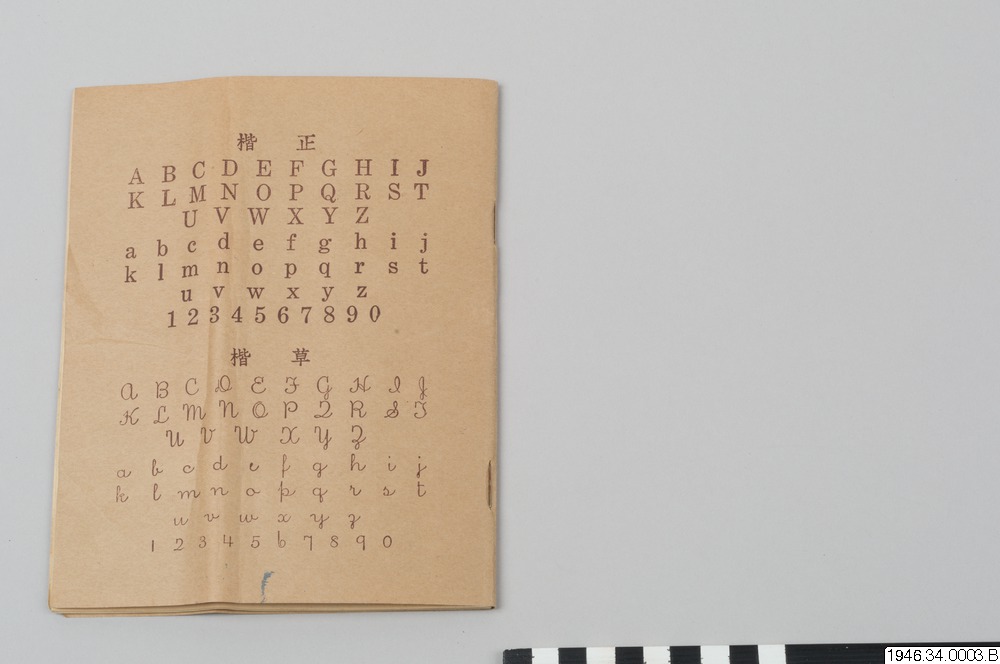 楷 正
A B C D E F G H I J
K L M N O P Q R S T
U V W X Y Z
a b c d e f g h i j
k l m n o p q r s t
u v w x y z
1 2 3 4 5 6 7 8 9 0
楷 草
A B C D E F G H I J
K L M N O P Q R S T
U V W X Y Z
a b c d e f g h i j
k l m n o p q r s t
u v w x y z
1 2 3 4 5 6 7 8 9 0
1946.34.0003.B